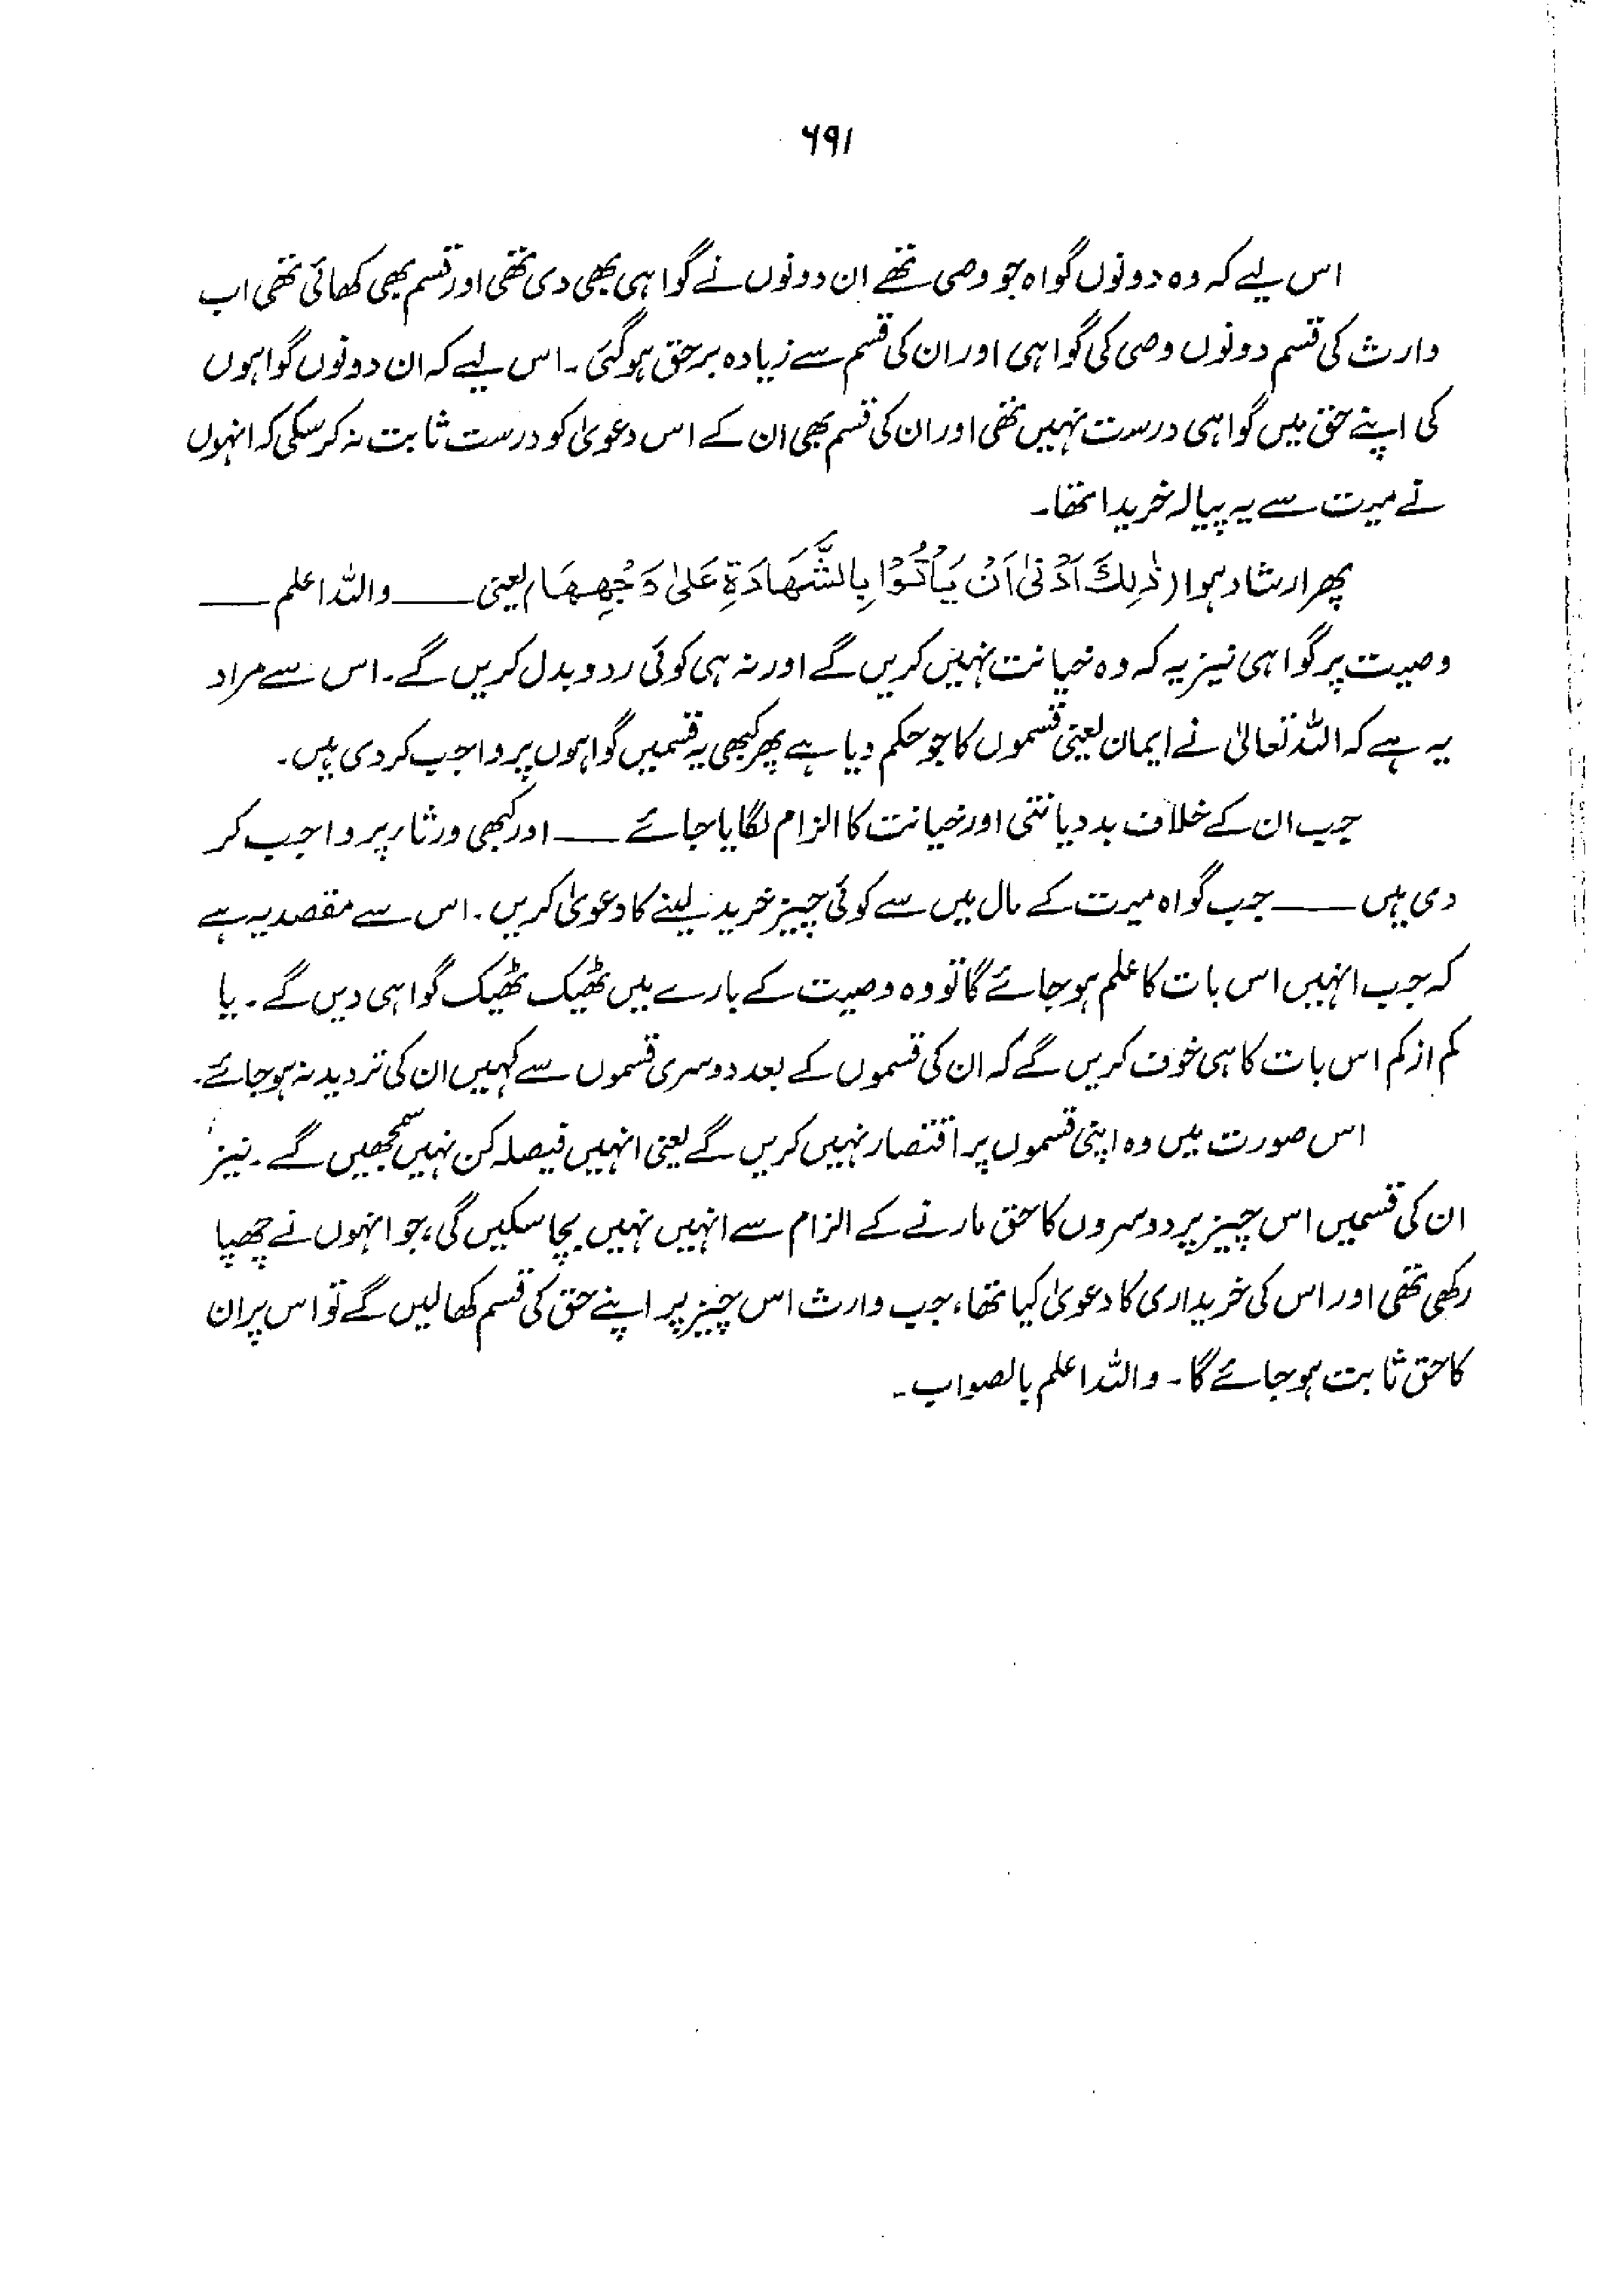 ۶۹۱
اس لیے کہ وہ دونوں گواہ جو وصی تھے ان دونوں نے گواہی بھی دی تھی اور قسم بھی کھائی تھی اب
وارث کی قسم دونوں وصی کی گواہی اور ان کی قسم سے زیادہ برحق ہوگئی۔ اس لیے کہ ان دونوں گواہوں
کی اپنے حق میں گواہی درست نہیں تھی اور ان کی قسم بھی ان کے اس دعویٰ کو درست ثابت نہ کرسکی کہ انہوں
نے میت سے یہ پیالہ خریدا تھا۔
پھر ارشاد ہوا (ذٰلِكَ اَدْنٰى اَنْ يَاْتُوْا بِالشَّهَادَةِ عَلٰى وَجْهِهَا) یعنی ــــــ واللہ اعلم ــــــ
وصیت پر گواہی نیز یہ کہ وہ خیانت نہیں کریں گے اور نہ ہی کوئی ردوبدل کریں گے۔ اس سے مراد
یہ ہے کہ اللہ تعالیٰ نے ایمان یعنی قسموں کا جو حکم دیا ہے پھر کبھی یہ قسمیں گواہوں پر واجب کردی ہیں۔
جب ان کے خلاف بددیانتی اور خیانت کا الزام لگایا جائے ــــــ اور کبھی ورثاء پر واجب کر
دی ہیں ــــــ جب گواہ میت کے مال میں سے کوئی چیز خرید لینے کا دعویٰ کریں۔ اس سے مقصد یہ ہے
کہ جب انہیں اس بات کا علم ہوجائے گا تو وہ وصیت کے بارے میں ٹھیک ٹھیک گواہی دیں گے۔ یا
کم از کم اس بات کا ہی خوف کریں گے کہ ان کی قسموں کے بعد دوسری قسموں سے کہیں ان کی تردید نہ ہوجائے۔
اس صورت میں وہ اپنی قسموں پر اقتصار نہیں کریں گے یعنی انہیں فیصلہ کن نہیں سمجھیں گے۔ نیز
ان کی قسمیں اس چیز پر دوسروں کا حق مارنے کے الزام سے انہیں نہیں بچا سکیں گی، جو انہوں نے چھپا
رکھی تھی اور اس کی خریداری کا دعویٰ کیا تھا، جب وارث اس چیز پر اپنے حق کی قسم کھالیں گے تو اس پر ان
کا حق ثابت ہوجائے گا۔ واللہ اعلم بالصواب۔